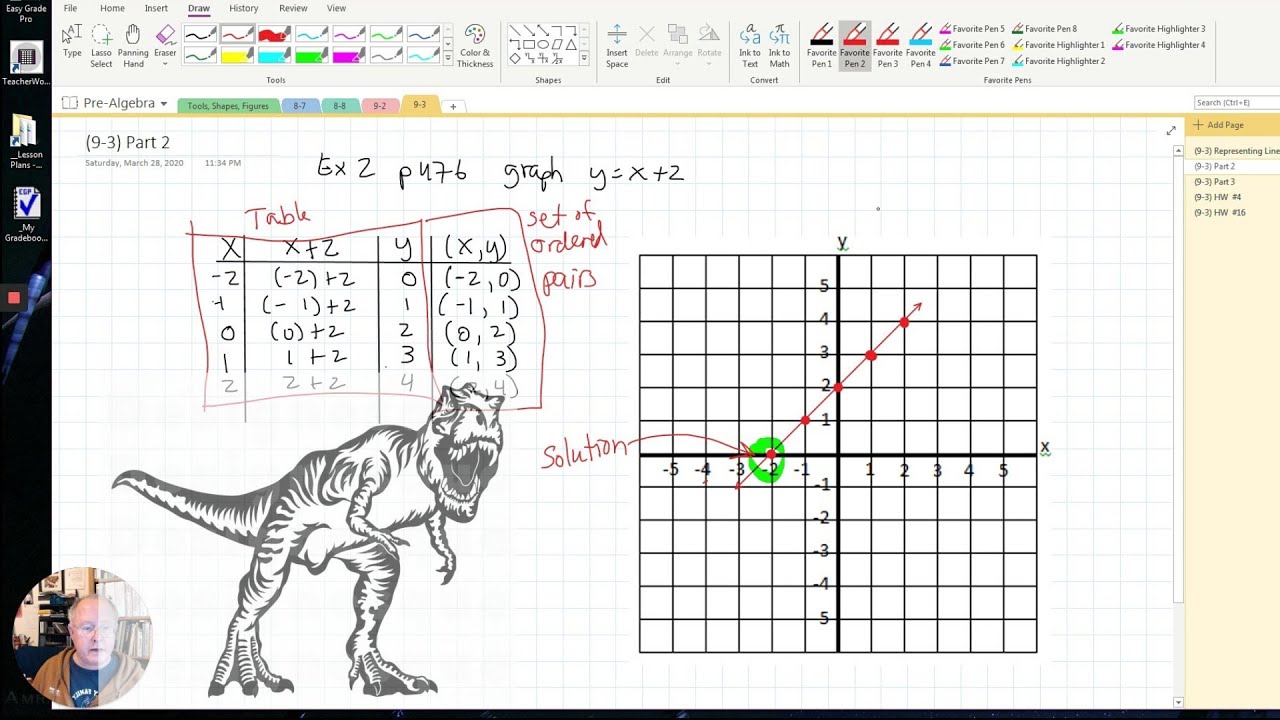 Easy Grade
Pro
TeacherWo...
__Lesson
Plans -...
_My
Gradeboo...
File Home Insert Draw History Review View
Type
Lasso
Select
Panning
Hand
Eraser
Tools
Color &
Thickness
Shapes
Insert
Space
Delete
Arrange
Rotate
Edit
Ink to
Text
Ink to
Math
Convert
Favorite
Pen 1
Favorite
Pen 2
Favorite
Pen 3
Favorite
Pen 4
Favorite Pen 5
Favorite Pen 6
Favorite Pen 7
Favorite Pen 8
Favorite Highlighter 1
Favorite Highlighter 2
Favorite Highlighter 3
Favorite Highlighter 4
Favorite Pens
Pre-Algebra
Tools, Shapes, Figures 8-7 8-8 9-2 9-3 +
Search (Ctrl+E)
Add Page
(9-3) Representing Line
(9-3) Part 2
(9-3) Part 3
(9-3) HW #4
(9-3) HW #16
(9-3) Part 2
Saturday, March 28, 2020 11:34 PM
Ex 2 p476 graph y=x+2
Table
set of
ordered
pairs
x x+2 y (x,y)
-2 (-2)+2 0 (-2,0)
(-1)+2 1 (-1, 1)
0 (0)+2 2 (0, 2)
1 1+2 3 (1, 3)
2 2+2 4
Solution
y
5
4
3
2
1
-5 -4 -3 -2 -1 1 2 3 4 5
x
-1
-2
-3
-4
5